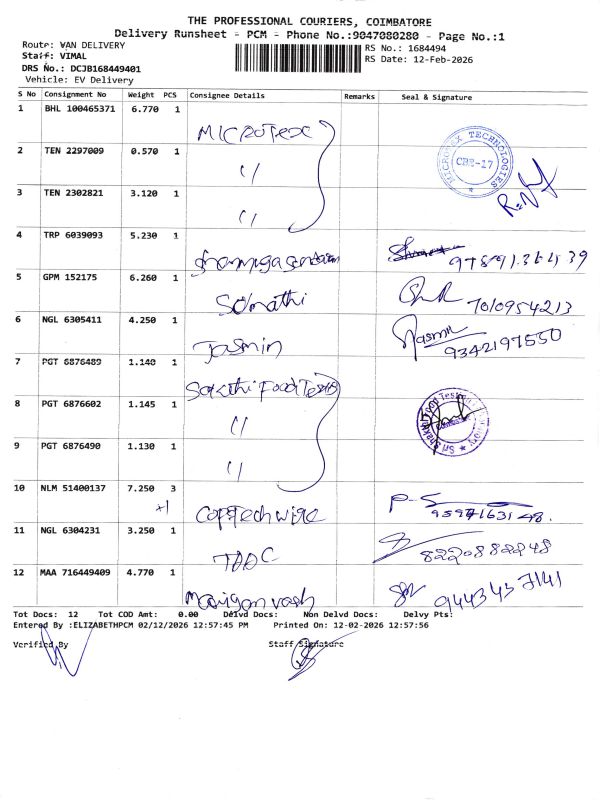 THE PROFESSIONAL COURIERS, COIMBATORE
Delivery Runsheet - PCM - Phone No.:9047080280 - Page No.:1
Route: VAN DELIVERY
Staff: VIMAL
DRS No.: DCJB168449401
Vehicle: EV Delivery
RS No.: 1684494
RS Date: 12-Feb-2026
S No Consignment No Weight PCS Consignee Details Remarks Seal & Signature
1 BHL 100465371 6.770 1 MICROTEX
2 TEN 2297009 0.570 1 "
MICROTEX TECHNOLOGIES
CBE-17
3 TEN 2302821 3.120 1 "
4 TRP 6039093 5.230 1
5 GPM 152175 6.260 1 7010954213
6 NGL 6305411 4.250 1 Jasmin Jasmin
9342197550
7 PGT 6876489 1.140 1 Sakthi Food Testing
8 PGT 6876602 1.145 1 "
9 PGT 6876490 1.130 1 "
10 NLM 51400137 7.250 3
+1
11 NGL 6304231 3.250 1 8220882248
12 MAA 716449409 4.770 1
Tot Docs: 12 Tot COD Amt: 0.00 Delvd Docs: Non Delvd Docs: Delvy Pts:
Entered By :ELIZABETHPCM 02/12/2026 12:57:45 PM Printed On: 12-02-2026 12:57:56
Verified By Staff Signature